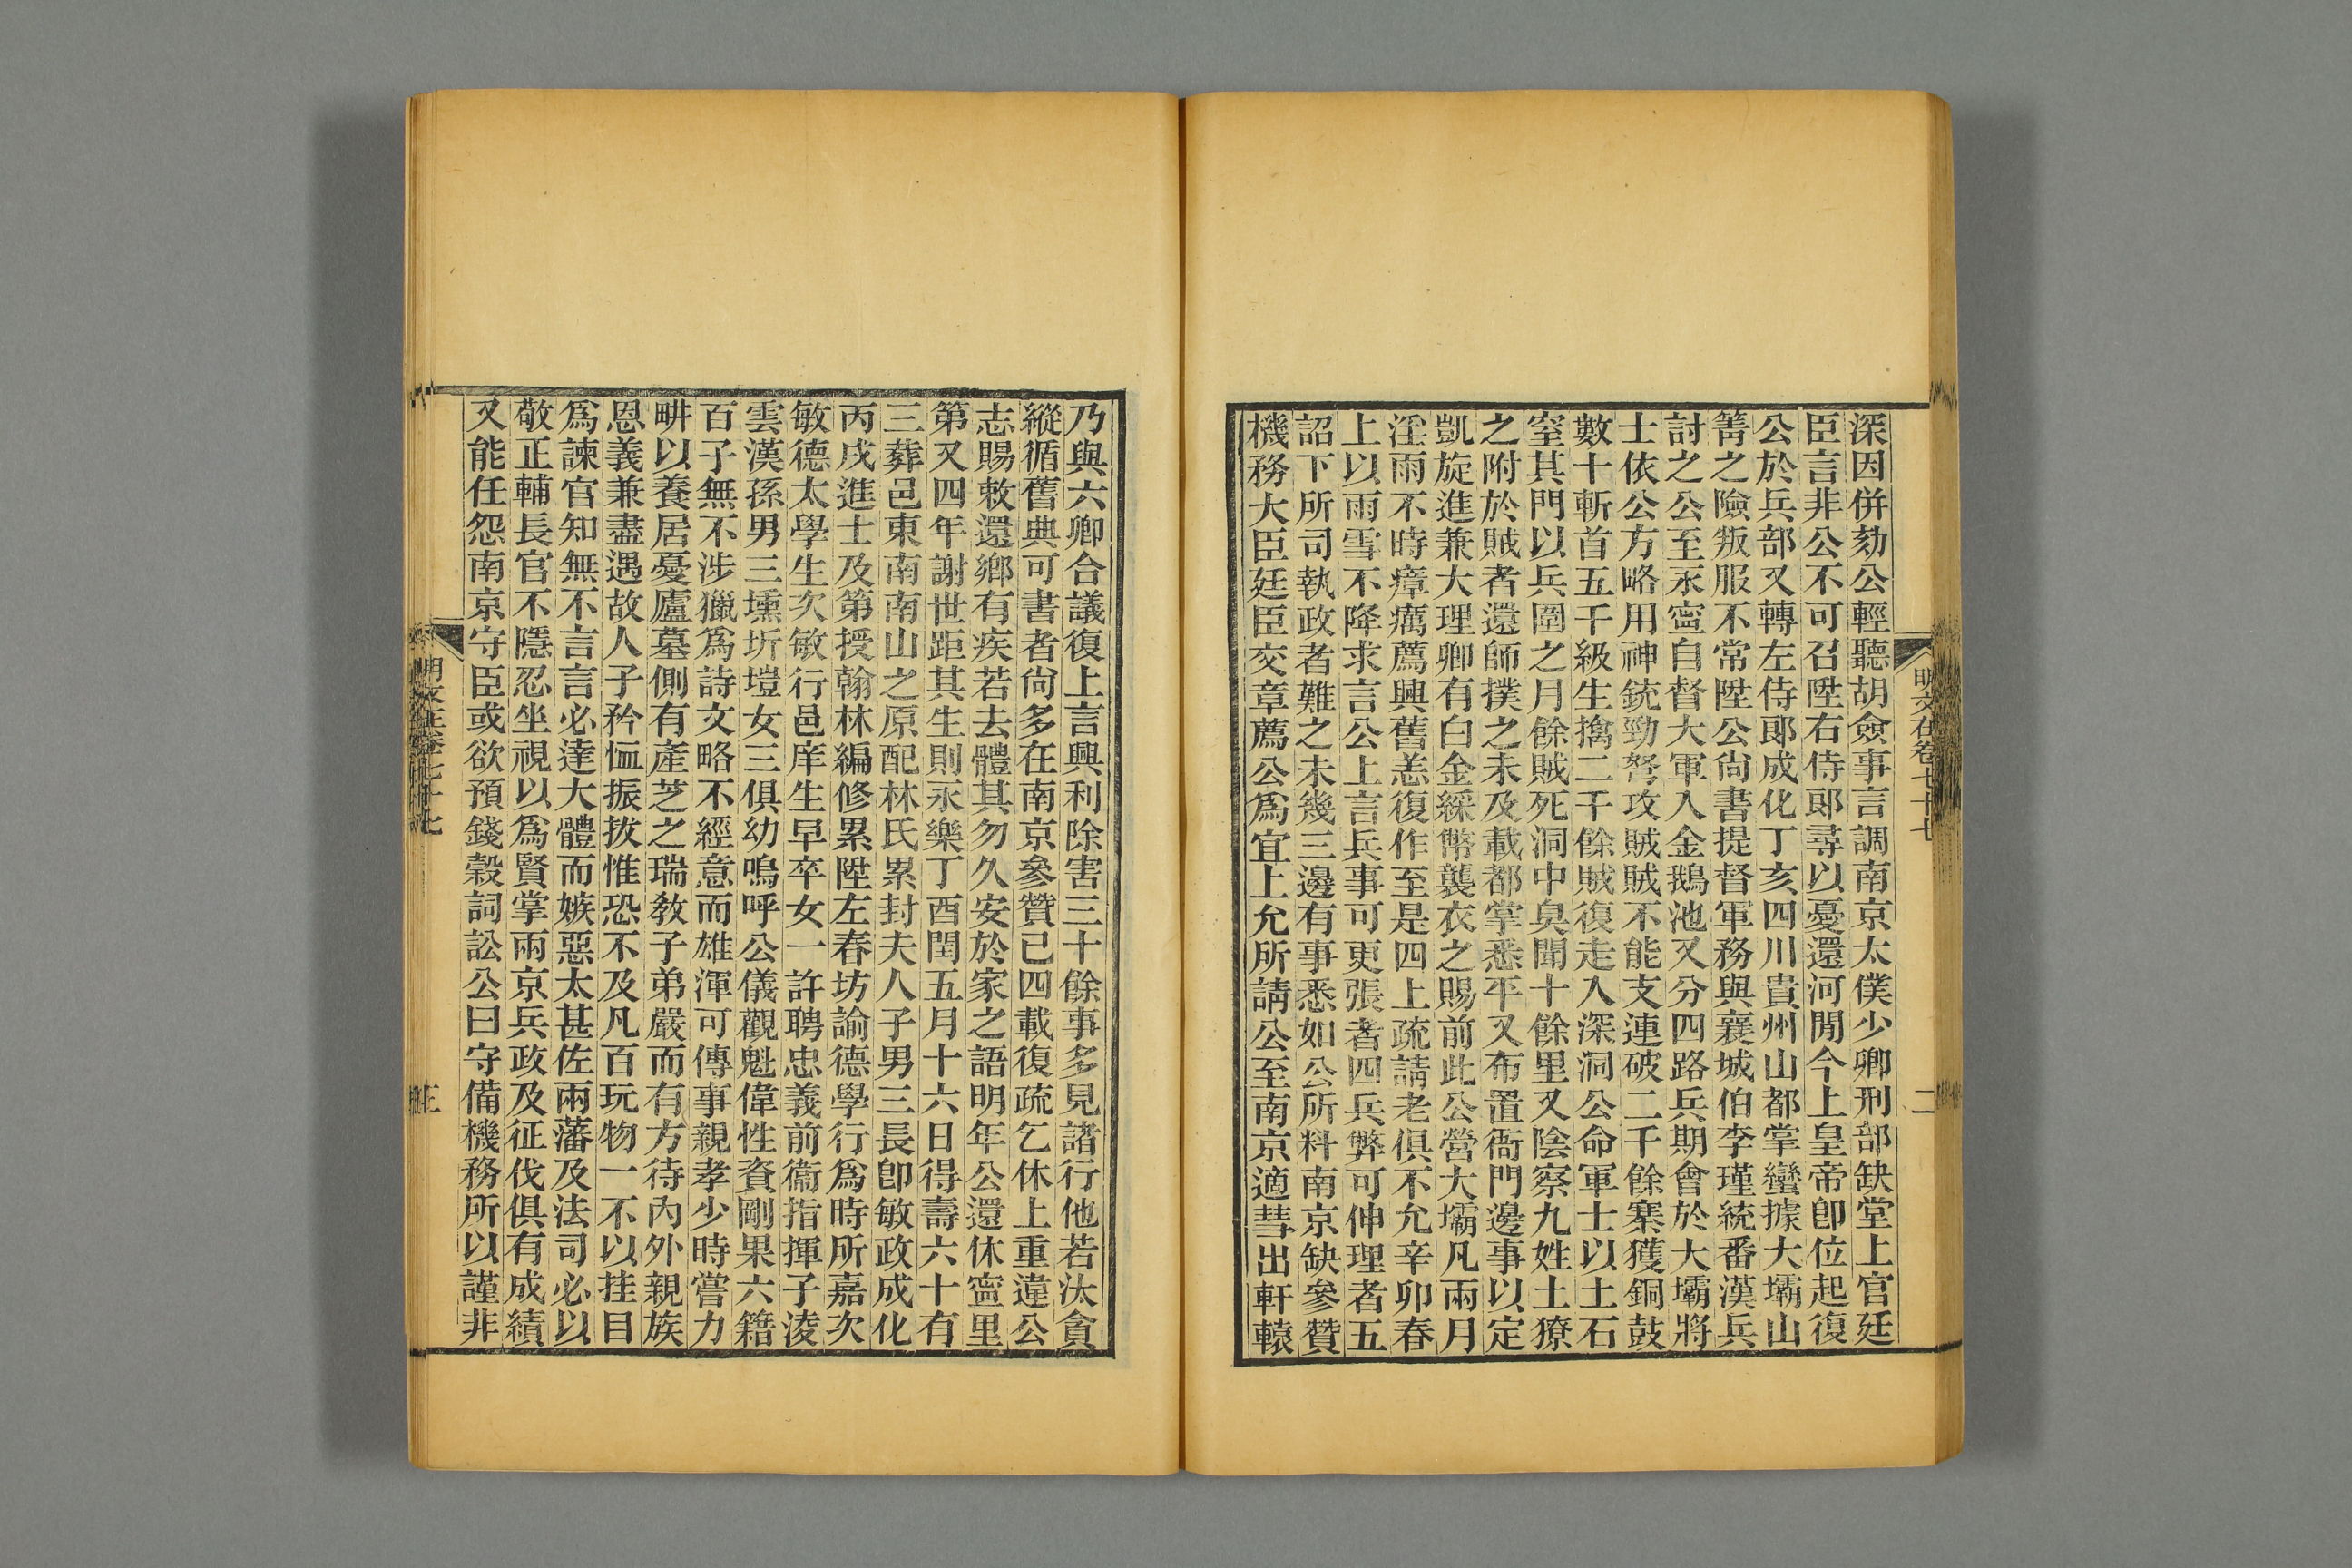 明文在卷七十七
二
深因併劾公輕聽胡僉事言調南京太僕少卿刑部缺堂上官廷
臣言非公不可召陞右侍郞尋以憂還河閒今上皇帝卽位起復
公於兵部又轉左侍郞成化丁亥四川貴州山都掌蠻據大壩山
箐之險叛服不常陞公尙書提督軍務與襄城伯李瑾統番漢兵
討之公至永寧自督大軍入金鵝池又分四路兵期會於大壩將
士依公方略用神銃勁弩攻賊賊不能支連破二千餘寨獲銅鼓
數十斬首五千級生擒二千餘賊復走入深洞公命軍士以土石
窒其門以兵圍之月餘賊死洞中臭聞十餘里又陰察九姓土獠
之附於賊者還師撲之未及載都掌悉平又布置衙門邊事以定
凱旋進兼大理卿有白金綵幣襲衣之賜前此公營大壩凡兩月
淫雨不時瘴癘薦興舊恙復作至是四上疏請老俱不允辛卯春
上以雨雪不降求言公上言兵事可更張者四兵弊可伸理者五
詔下所司執政者難之未幾三邊有事悉如公所料南京缺參贊
機務大臣廷臣交章薦公爲宜上允所請公至南京適彗出軒轅
乃與六卿合議復上言興利除害三十餘事多見諸行他若汰貪
縱循舊典可書者尙多在南京參贊已四載復疏乞休上重違公
志賜敕還鄕有疾若去體其勿久安於家之語明年公還休寧里
第又四年謝世距其生則永樂丁酉閏五月十六日得壽六十有
三葬邑東南南山之原配林氏累封夫人子男三長卽敏政成化
丙戌進士及第授翰林編修累陞左春坊諭德學行爲時所嘉次
敏德太學生次敏行邑庠生早卒女一許聘忠義前衞指揮子淩
雲漢孫男三壎圻塏女三俱幼嗚呼公儀觀魁偉性資剛果六籍
百子無不涉獵爲詩文略不經意而雄渾可傳事親孝少時嘗力
畊以養居憂廬墓側有產芝之瑞敎子弟嚴而有方待內外親族
恩義兼盡遇故人子矜恤振拔惟恐不及凡百玩物一不以挂目
爲諫官知無不言言必達大體而嫉惡太甚佐兩藩及法司必以
敬正輔長官不隱忍坐視以爲賢掌兩京兵政及征伐俱有成績
又能任怨南京守臣或欲預錢穀詞訟公曰守備機務所以謹非
明文在卷七十七